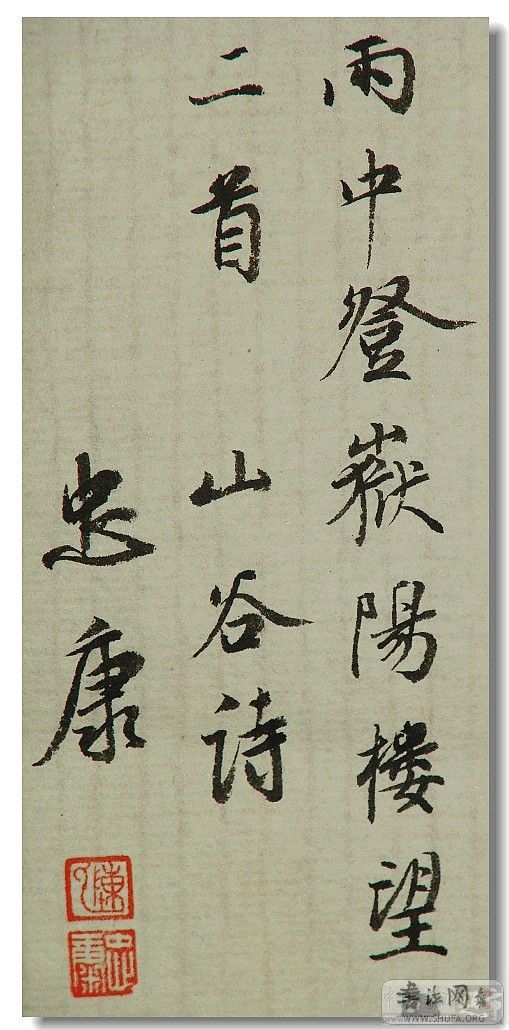 雨中登嶽陽楼望
二首 山谷诗
忠康
陳
忠康
書法网
WWW.SHUFA.ORG